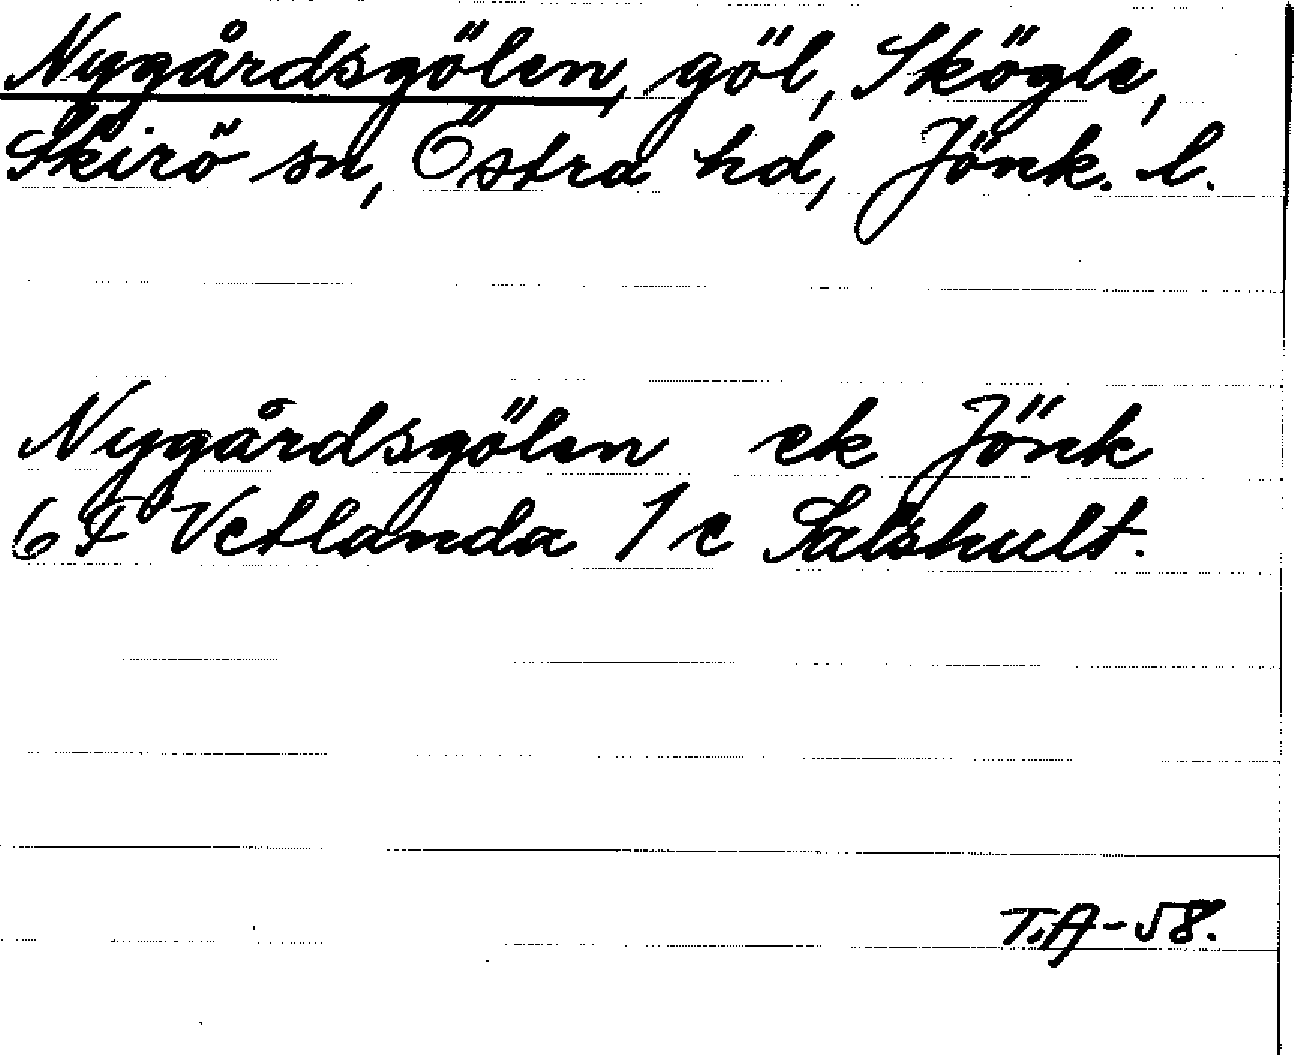 Nygårdsgölen, göl, Skögle,
Skirö sn, Östra hd, Jönk. l.
Nygårdsgölen ek Jönk
6 F Vetlanda 1 c Salshult.
T.A-58.